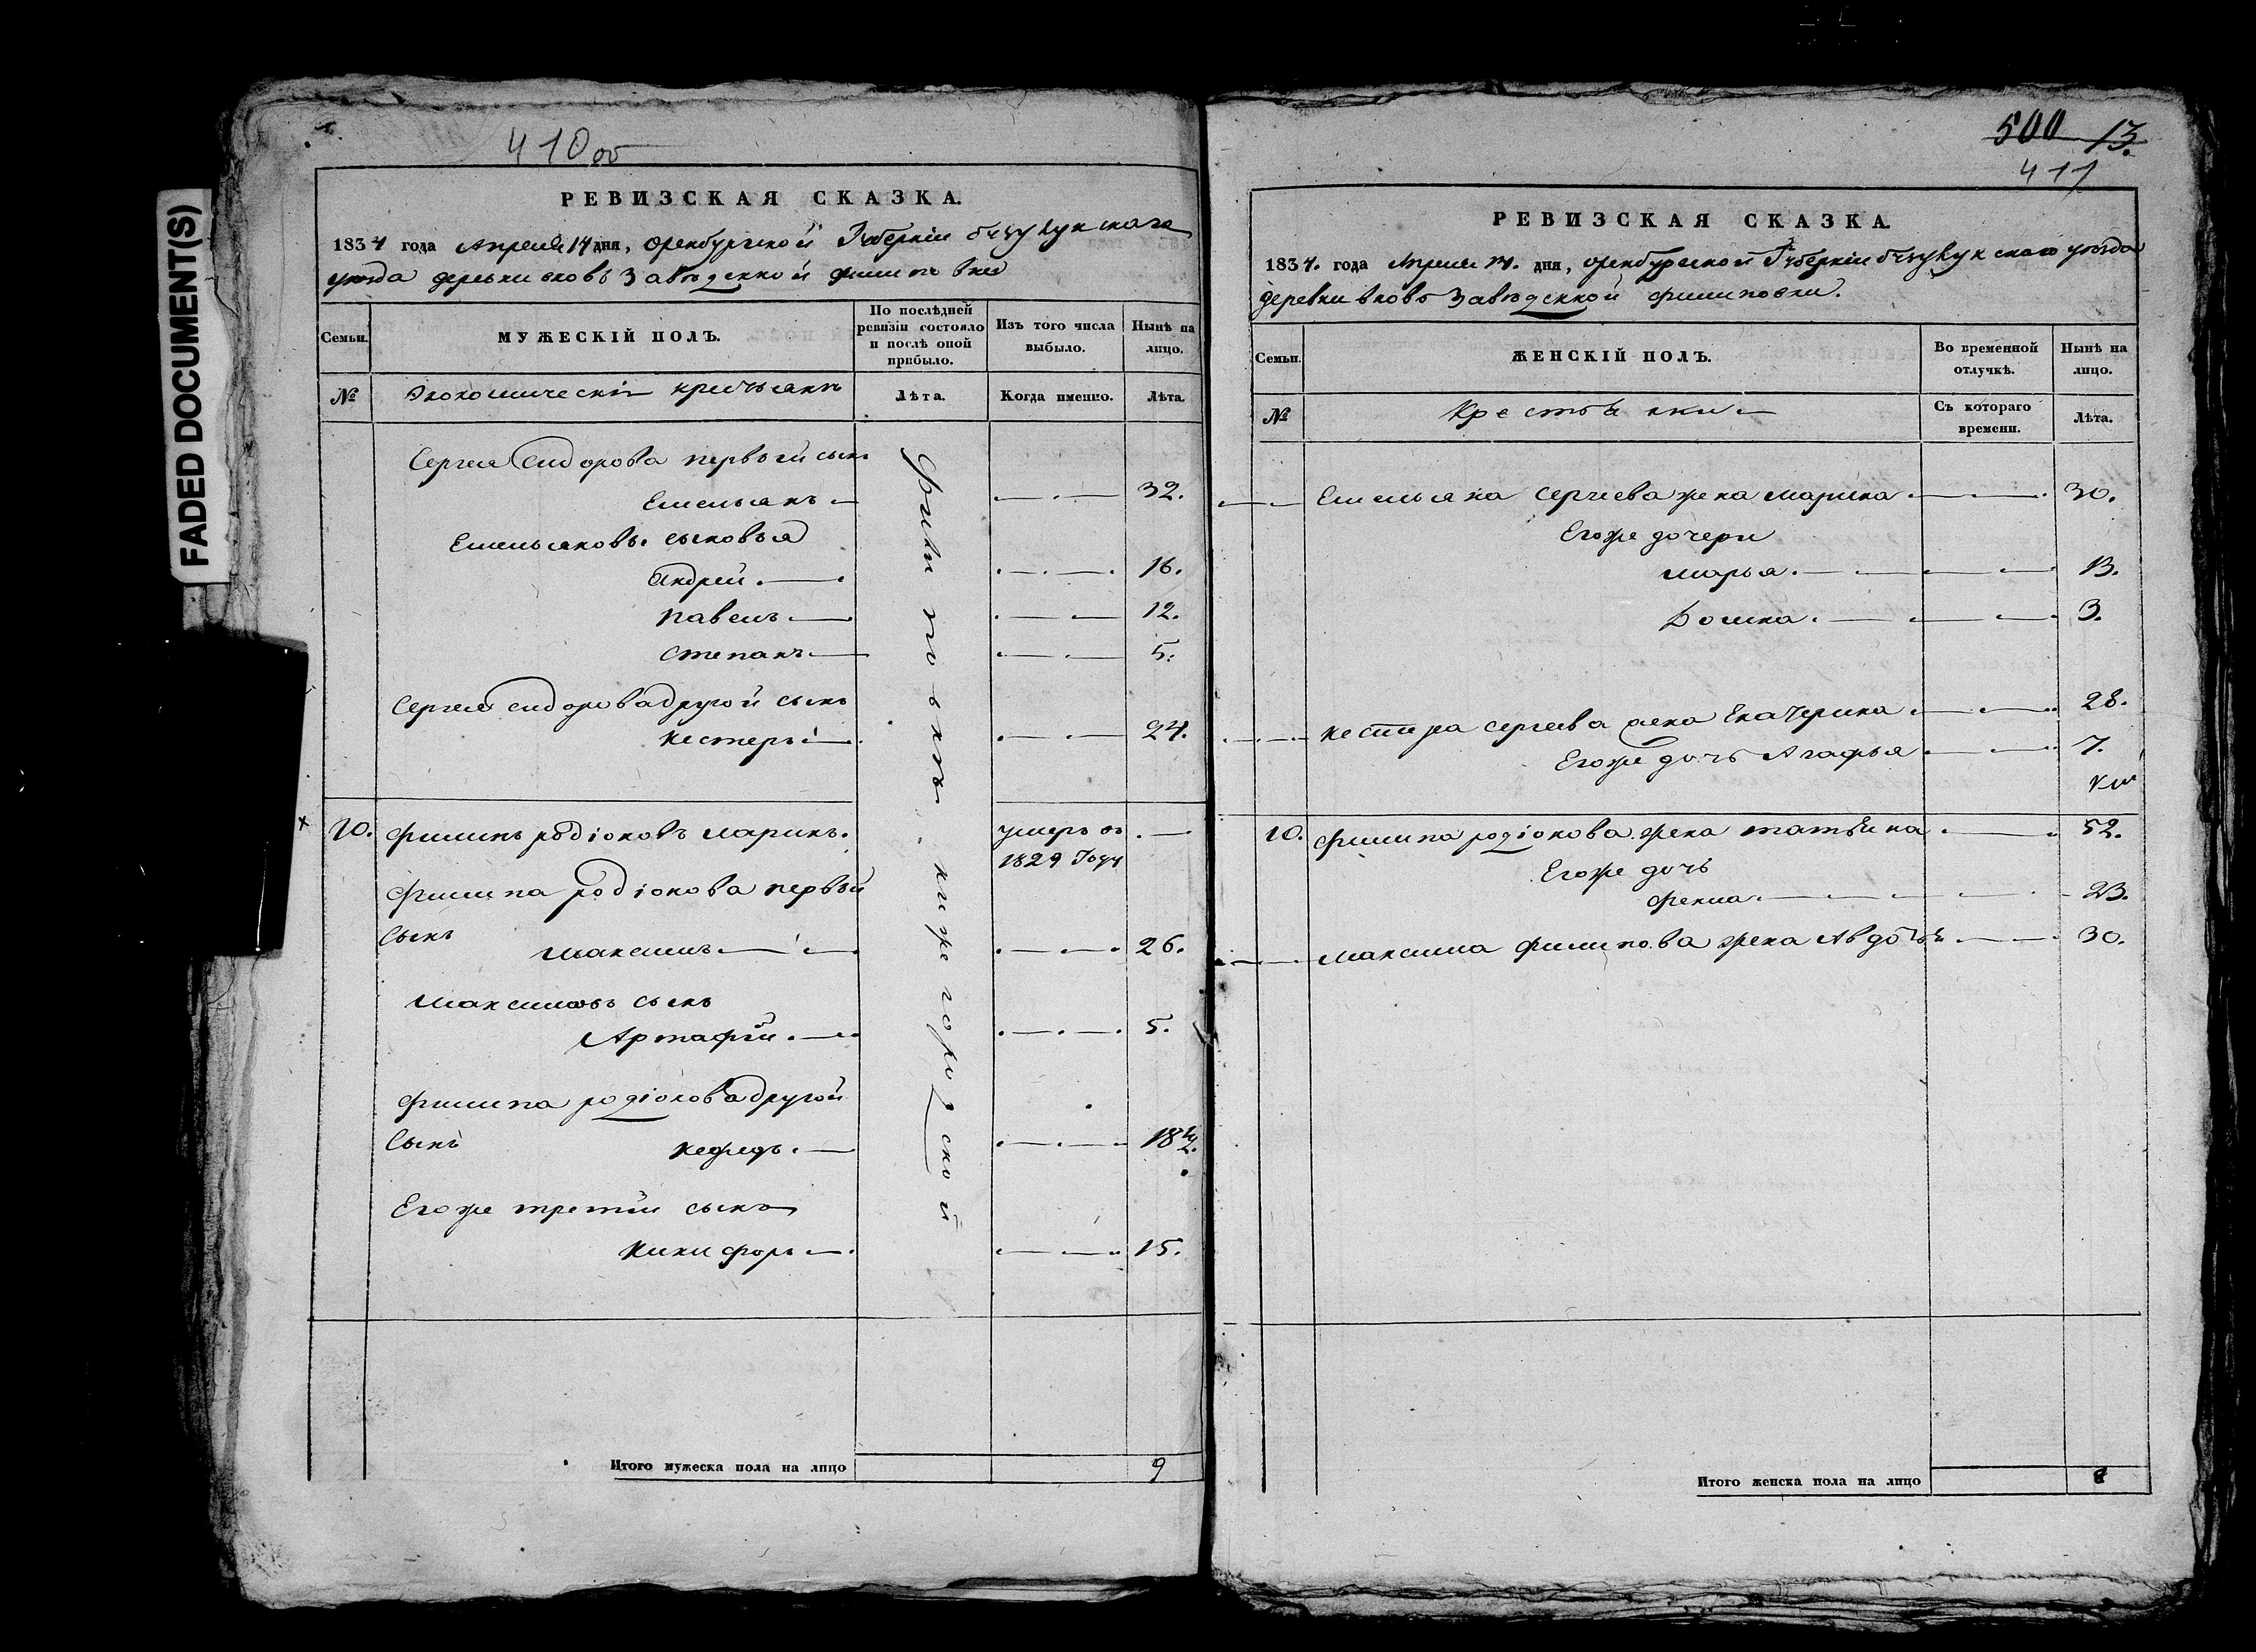 FADED DOCUMENT(S)
410 об
РЕВИЗСКАЯ СКАЗКА.
1834 года Апреля 14 дня, Оренбургской Губернiи бузулукскаго
уезда деревни вновь Заведенной Филиповки
Семьи.
МУЖЕСКІЙ ПОЛЪ.
По послѣдней ревизіи состояло и послѣ оной прибыло.
Изъ того числа выбыло.
Нынѣ на лицо.
№
Экономическiй крестьянъ
Лѣта.
Когда именно.
Лѣта.
Сергея Сидорова первый сынъ
Емельянъ 32.
Емельяновы сыновья
Андрей 16.
Павелъ 12.
Степанъ 5.
Сергея Сидорова другой сынъ
Нестеръ 24.
10. Филипъ родiоновъ маринъ. умеръ въ
1829 Году
Филипа родiонова первый
Сынъ Максимъ 26.
Максимовъ сынъ
5.
Филипа родiонова другой
Сынъ 18 1/2.
Его же третiй сынъ
Никифоръ 15.
Итого мужеска пола на лицо 9
500 13.
411
РЕВИЗСКАЯ СКАЗКА.
1834. года Апреля 14. дня, Оренбургской Губернiи бузулукскаго уезда
деревни вновь Заведенной Филиповки.
Семьи.
ЖЕНСКІЙ ПОЛЪ.
Во временной отлучкѣ.
Нынѣ на лицо.
№
Крестьянки
Съ котораго времени.
Лѣта.
Емельяна Сергеева жена марина 30.
Его же дочери
марья 13.
Домна 3.
Нестера Сергеева жена Екатерина 28.
Его же дочь Агафья 7.
10. Филипа родiонова жена татьяна 52.
Его же дочь
Фекла 23.
Максима филипова жена Авдотья 30.
Итого женска пола на лицо 8